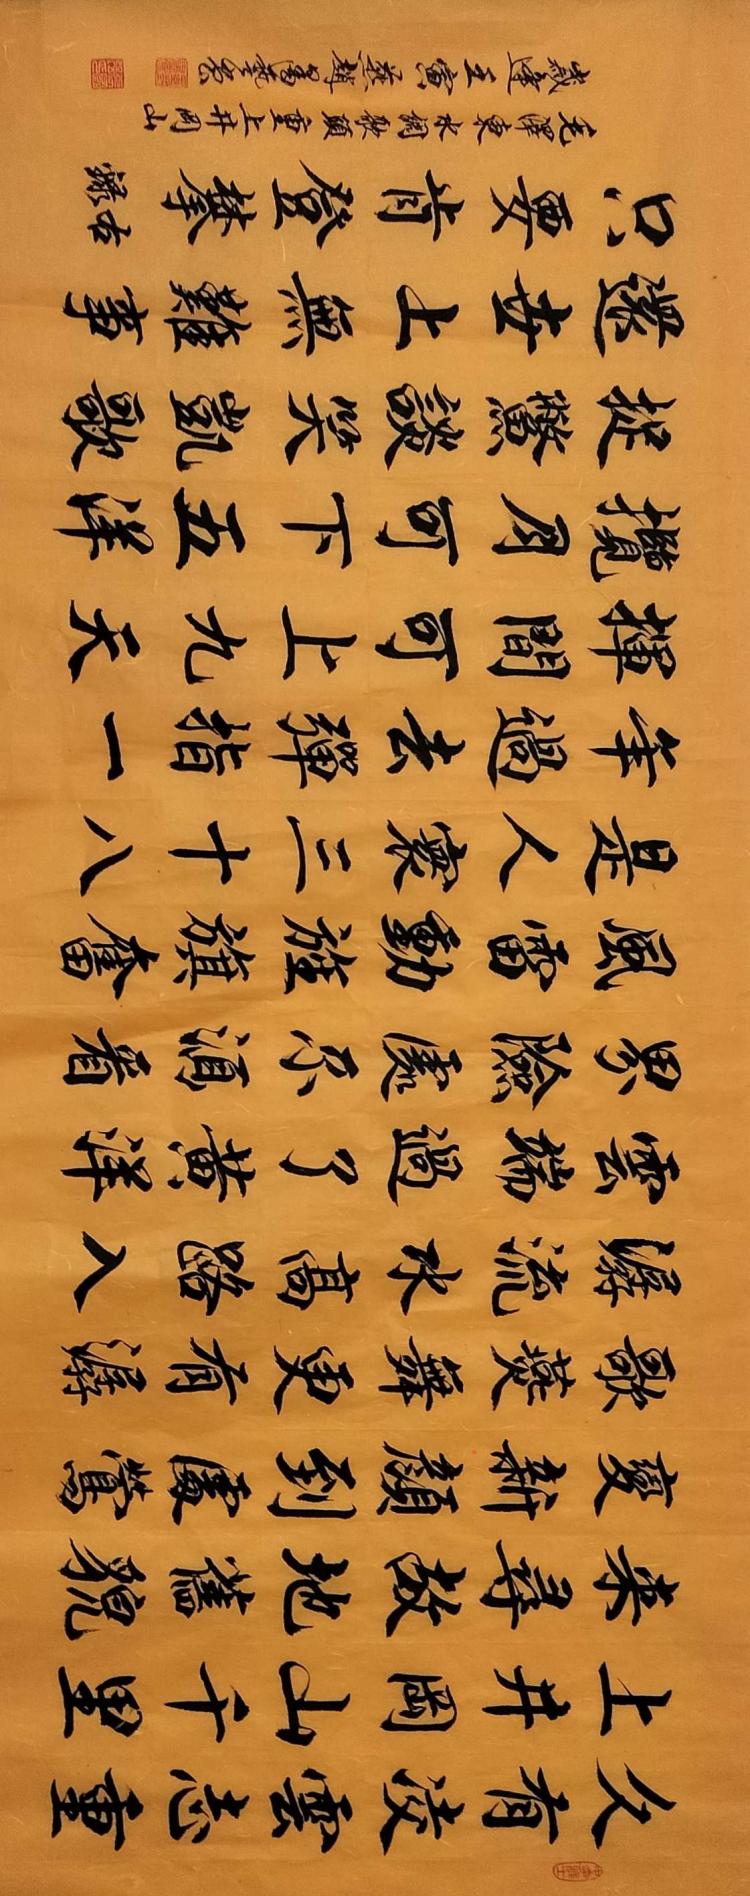 久有凌雲志重
上井岡山千里
来尋故地舊貌
變新顏到處鶯
歌燕舞更有潺
潺流水高路入
雲端過了黃洋
界險處不須看
風雷動旌旗奮
是人寰三十八
年過去彈指一
揮間可上九天
攬月可下五洋
捉鱉談笑凱歌
還世上無難事
只要肯登攀 右錄
毛澤東水調歌頭重上井岡山
歲逢壬寅